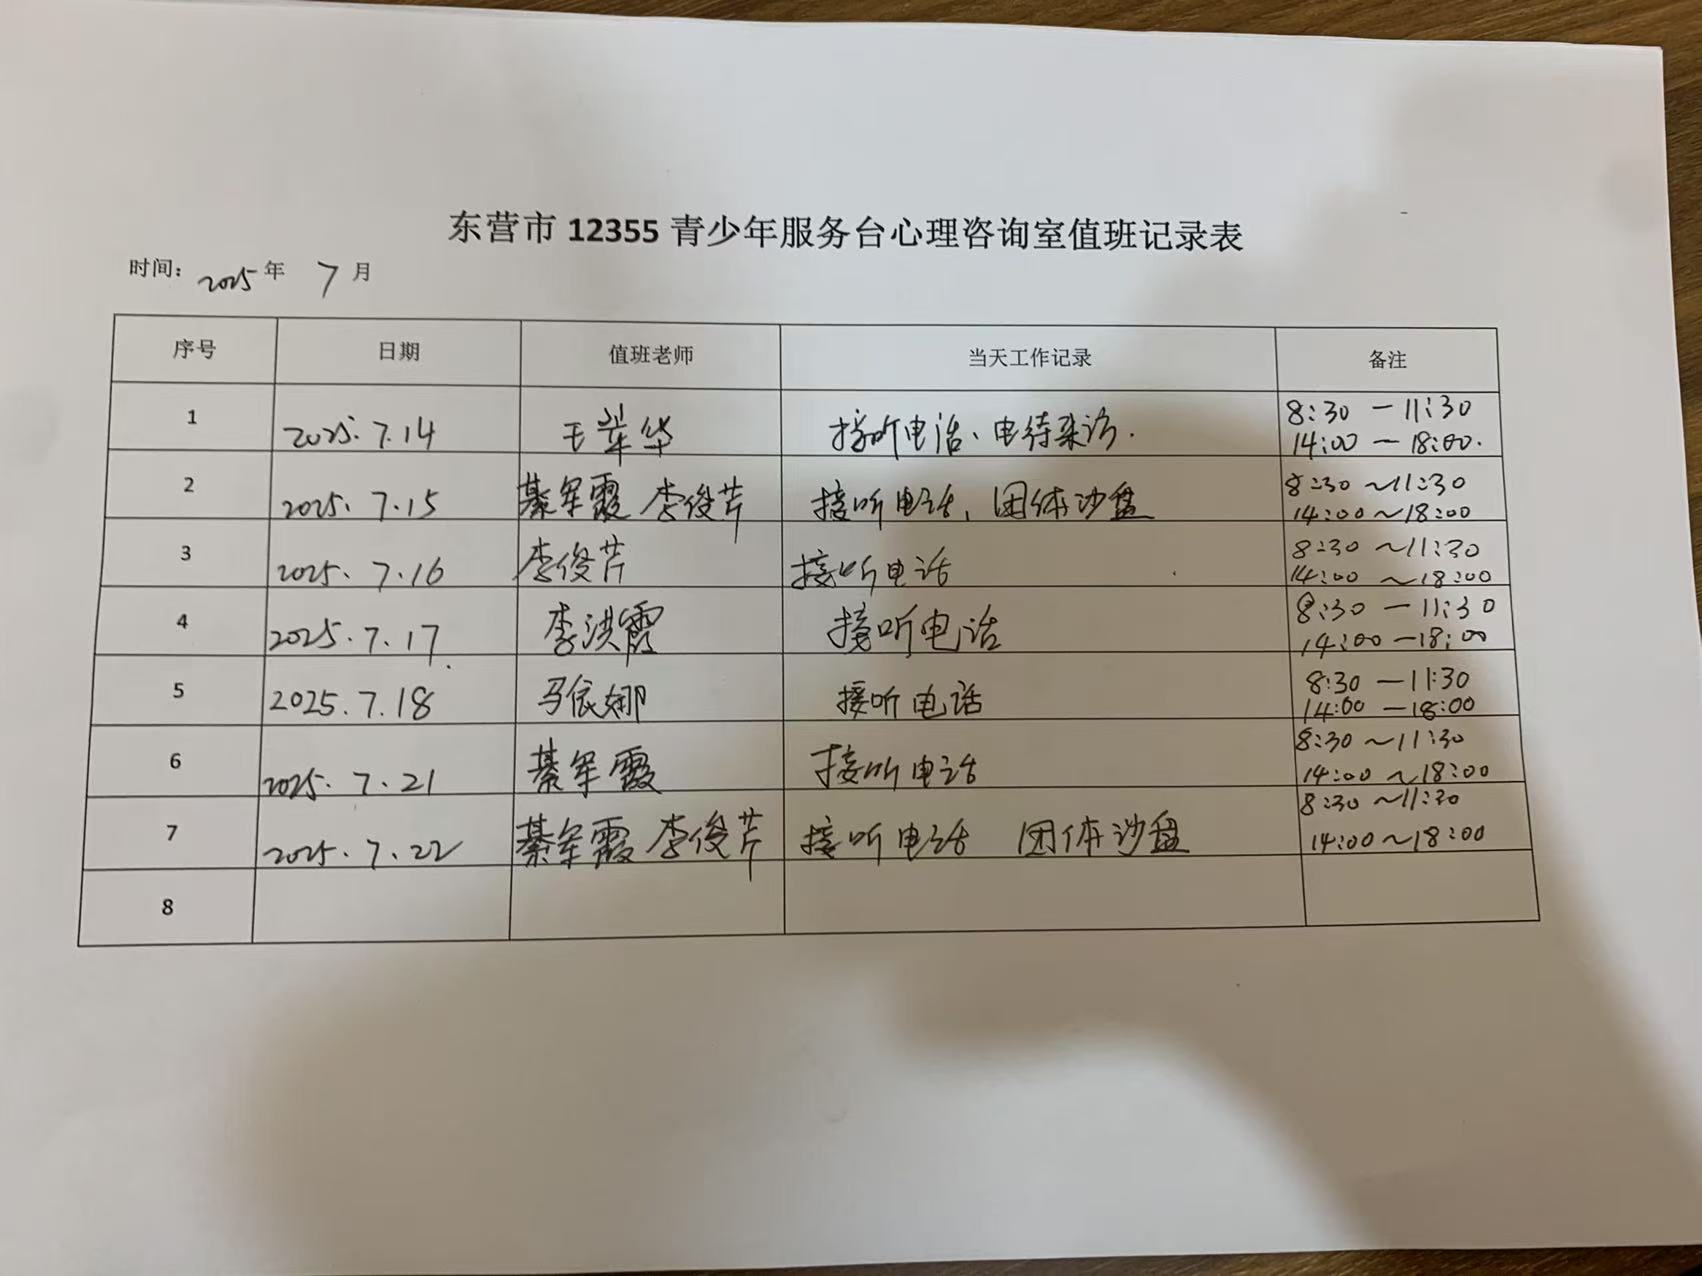 东营市 12355 青少年服务台心理咨询室值班记录表
时间： 2025 年 7 月
序号 日期 值班老师 当天工作记录 备注
1 2025.7.14 王 华 接听电话、电待来访. 8:30 — 11:30
14:00 — 18:00.
2 2025.7.15 綦军霞 李俊芹 接听电话、团体沙盘 8:30 ～11:30
14:00～18:00
3 2025.7.16 李俊芹 接听电话 8:30 ～11:30
14:00 ～18:00
4 2025.7.17. 李洪霞 接听电话 8:30 — 11:30
14:00 —18:00
5 2025.7.18 马依娜 接听电话 8:30 —11:30
14:00 —18:00
6 2025.7.21 綦军霞 接听电话 8:30 ～11:30
14:00 ～18:00
7 2025.7.22 綦军霞 李俊芹 接听电话 团体沙盘 8:30 ～11:30
14:00～18:00
8